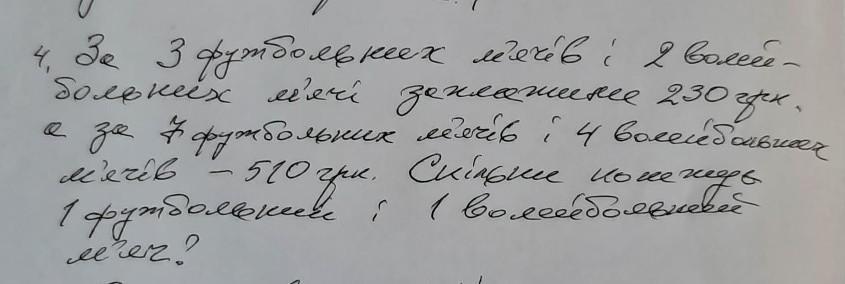 4. За 3 футбольних м'ячів і 2 волей-
больних м'ячі заплатили 230 грн,
а за 7 футбольних м'ячів і 4 волейбольних
м'ячів – 510 грн. Скільки коштує
1 футбольний і 1 волейбольний
м'яч?